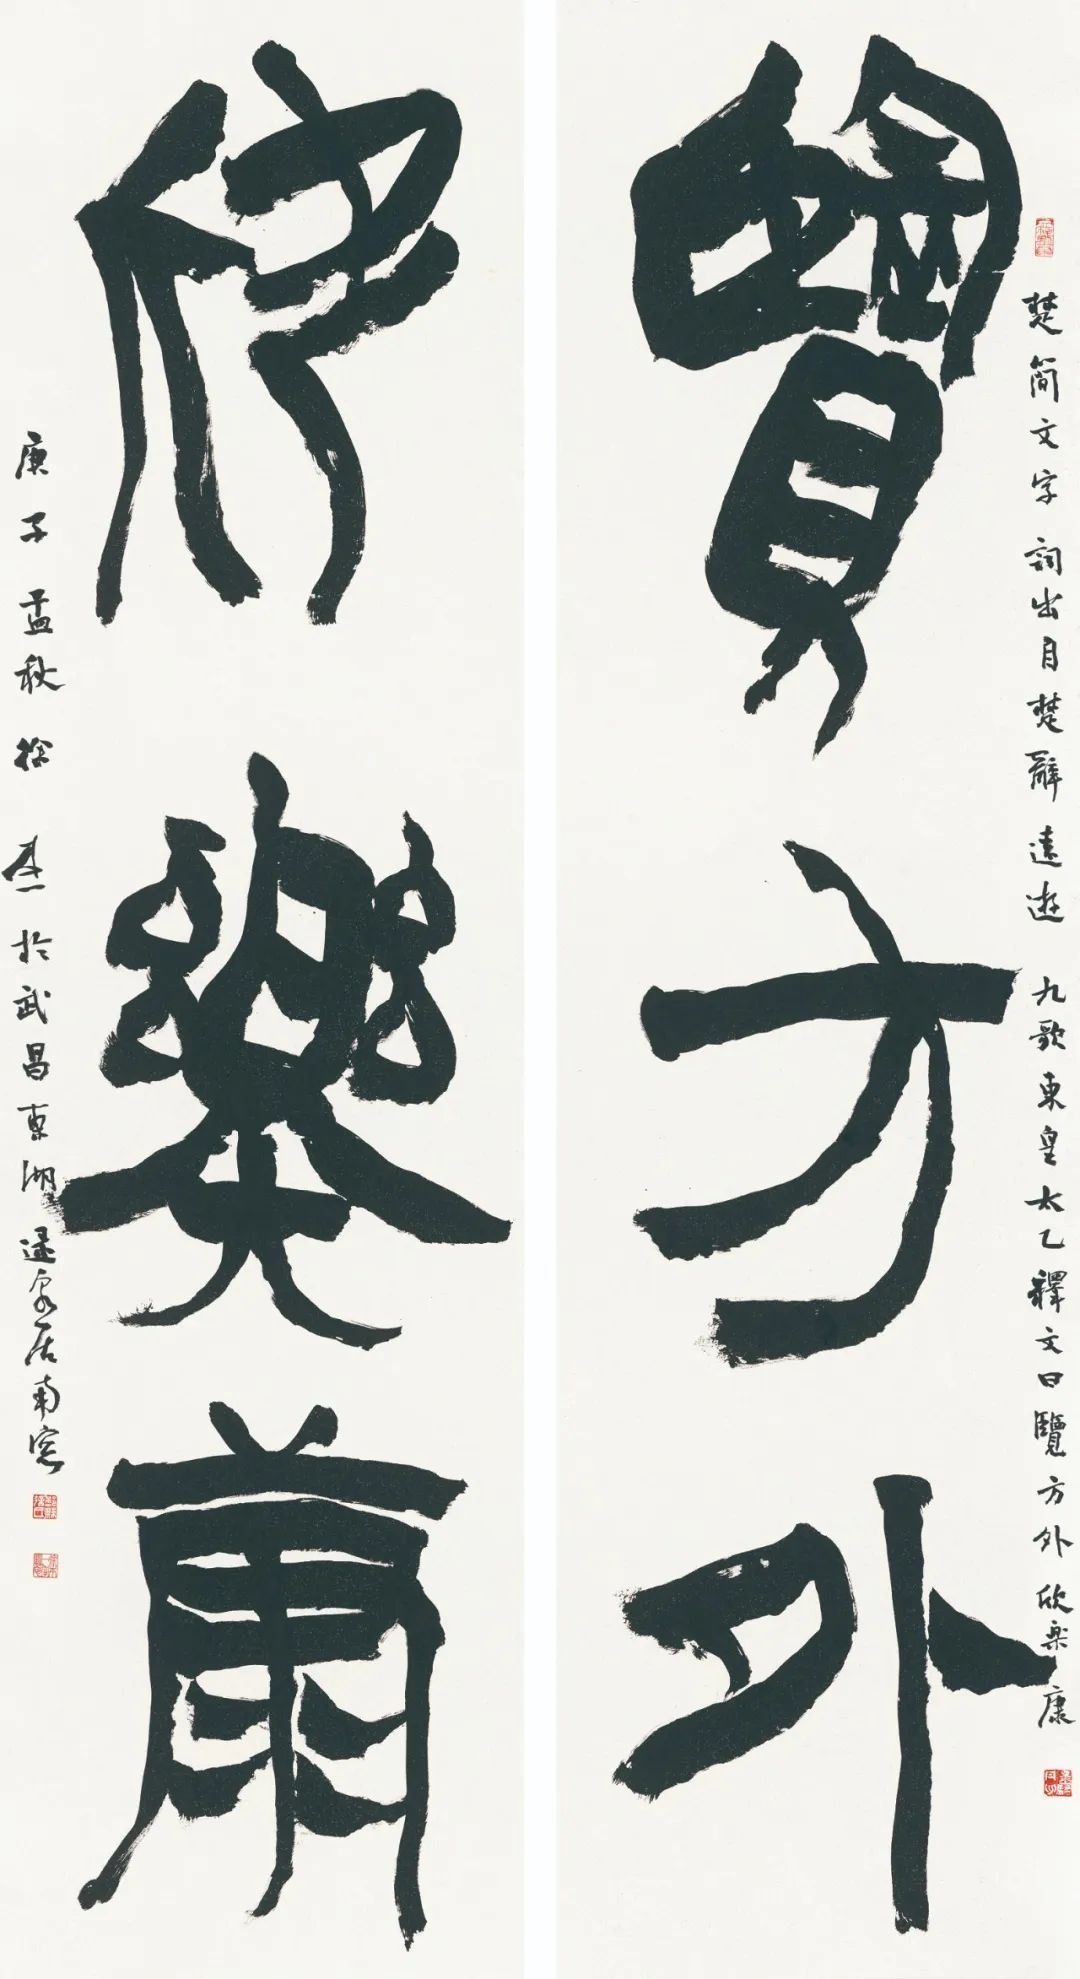 覽方外
楚简文字 詞出自楚辭遠遊 九歌東皇太乙釋文曰覽方外欣楽康
欣樂康
庚子孟秋徐本一於武昌東湖居南窓